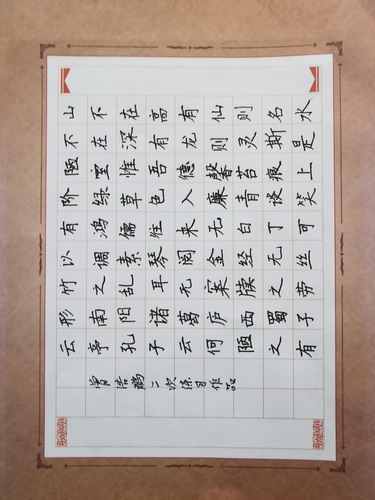 山不在高有仙则名水
不在深有龙则灵斯是
陋室惟吾德馨苔痕上
阶绿草色入廉青谈笑
有鸿儒往来无白丁可
以调素琴阅金经无丝
竹之乱耳无案牍之劳
形南阳诸葛庐西蜀子
云亭孔子云何陋之有
二次练习作品